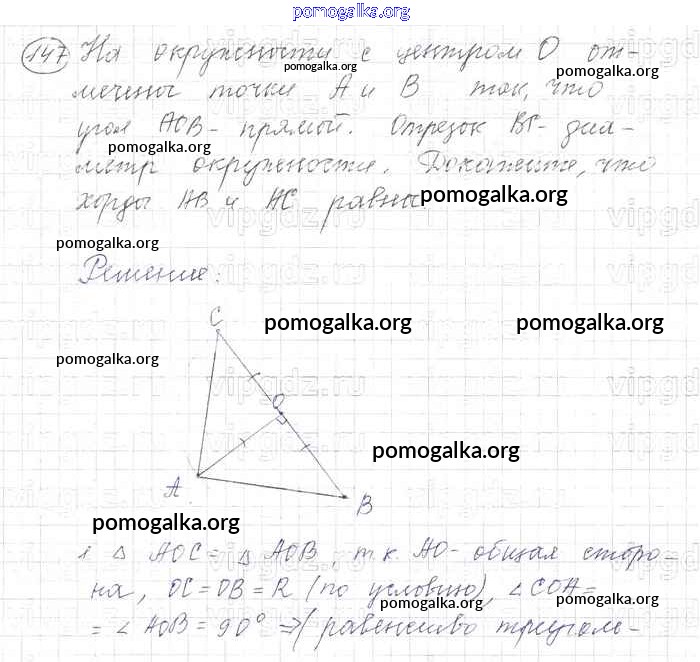 pomogalka.org
147 На окружности с центром O от-
мечены точки A и B так, что
угол AOB - прямой. Отрезок BC- диа-
метр окружности. Докажите, что
хорды AB и AC равны
Решение:
C
O
A
B
1 △ AOC = △ AOB, т.к. AO - общая сторо-
на, OC = OB = R (по условию), ∠COA =
= ∠AOB = 90° ⇒ (равенство треуголь-
pomogalka.org
pomogalka.org
pomogalka.org
pomogalka.org
pomogalka.org
pomogalka.org
pomogalka.org
pomogalka.org
pomogalka.org
pomogalka.org
pomogalka.org
pomogalka.org